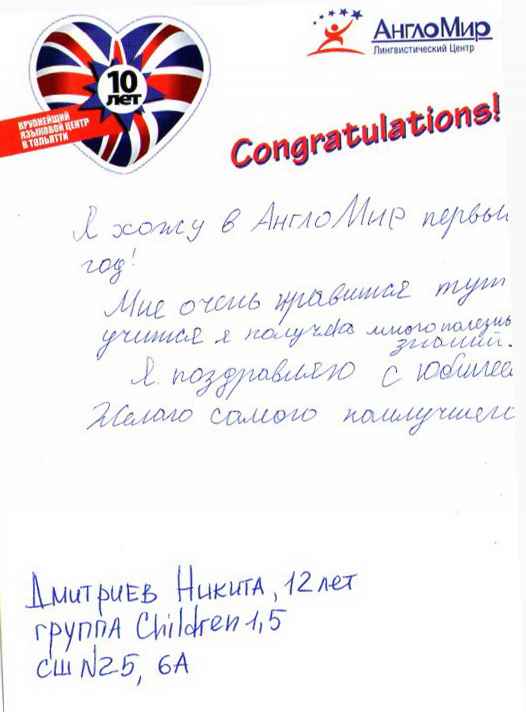 10
лет
КРУПНЕЙШИЙ
ЯЗЫКОВОЙ ЦЕНТР
В ТОЛЬЯТТИ
АнглоМир
Лингвистический Центр
Congratulations!
Я хожу в АнглоМир первый
год!
Мне очень нравится тут
учится я получаю много полезны
знаний.
Я поздравляю с юбилее
Желаю самого наилучшего
Дмитриев Никита, 12 лет
группа Children 1,5
сш N25, 6А